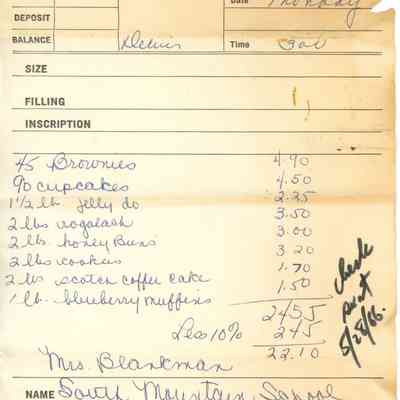 Date Monday
DEPOSIT
BALANCE Time
SIZE
FILLING
INSCRIPTION
45 Brownies 4.90
90 cupcakes 4.50
1 1/2 lb. jelly do 2.25
2 lbs rogalash 3.50
2 lb. honey Buns 3.00
2 lbs cookies 3.20
2 lbs scotch coffee cake 1.70
1 lb. blueberry muffins 1.50
2455
Less 10% 245
22.10
check sent 5/25/66.
Mrs. Blankman
NAME South Mountain School